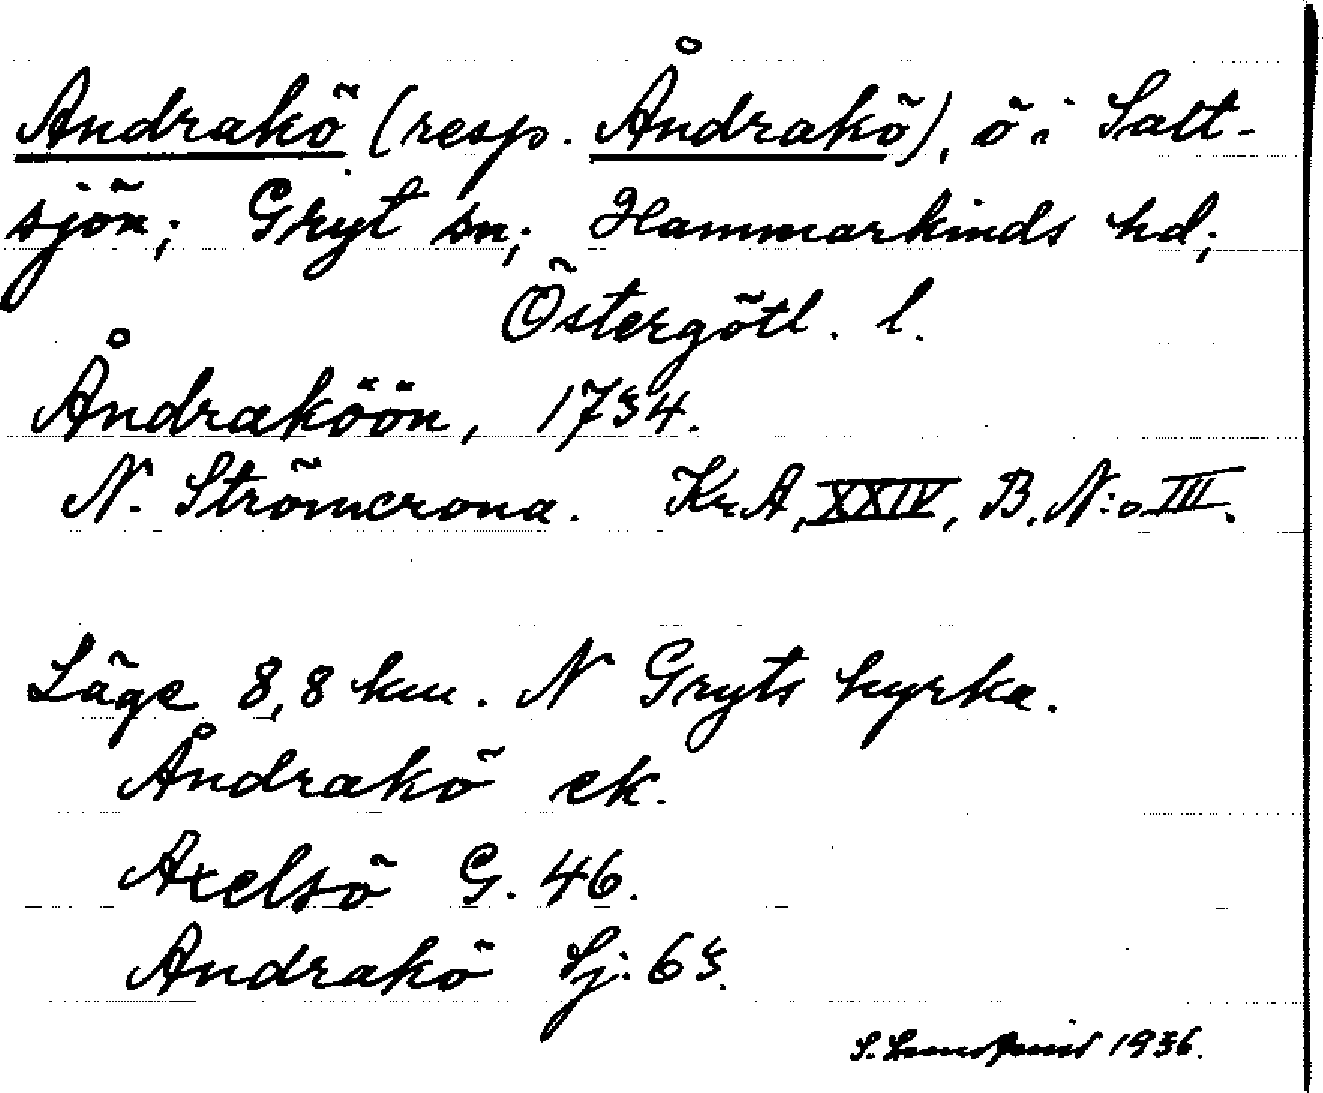 Andrakö (resp. Åndrakö), ö i Salt-
sjön; Gryt sn; Hammarkinds hd;
Östergötl. l.
Åndraköön, 1734.
N. Strömcrona. Kr.A, XXIV, B. N:o III.
Läge 8,8 km. N Gryts kyrka.
Åndrakö ek.
Axelsö G. 46.
Andrakö Sj. 63.
S. 1936.